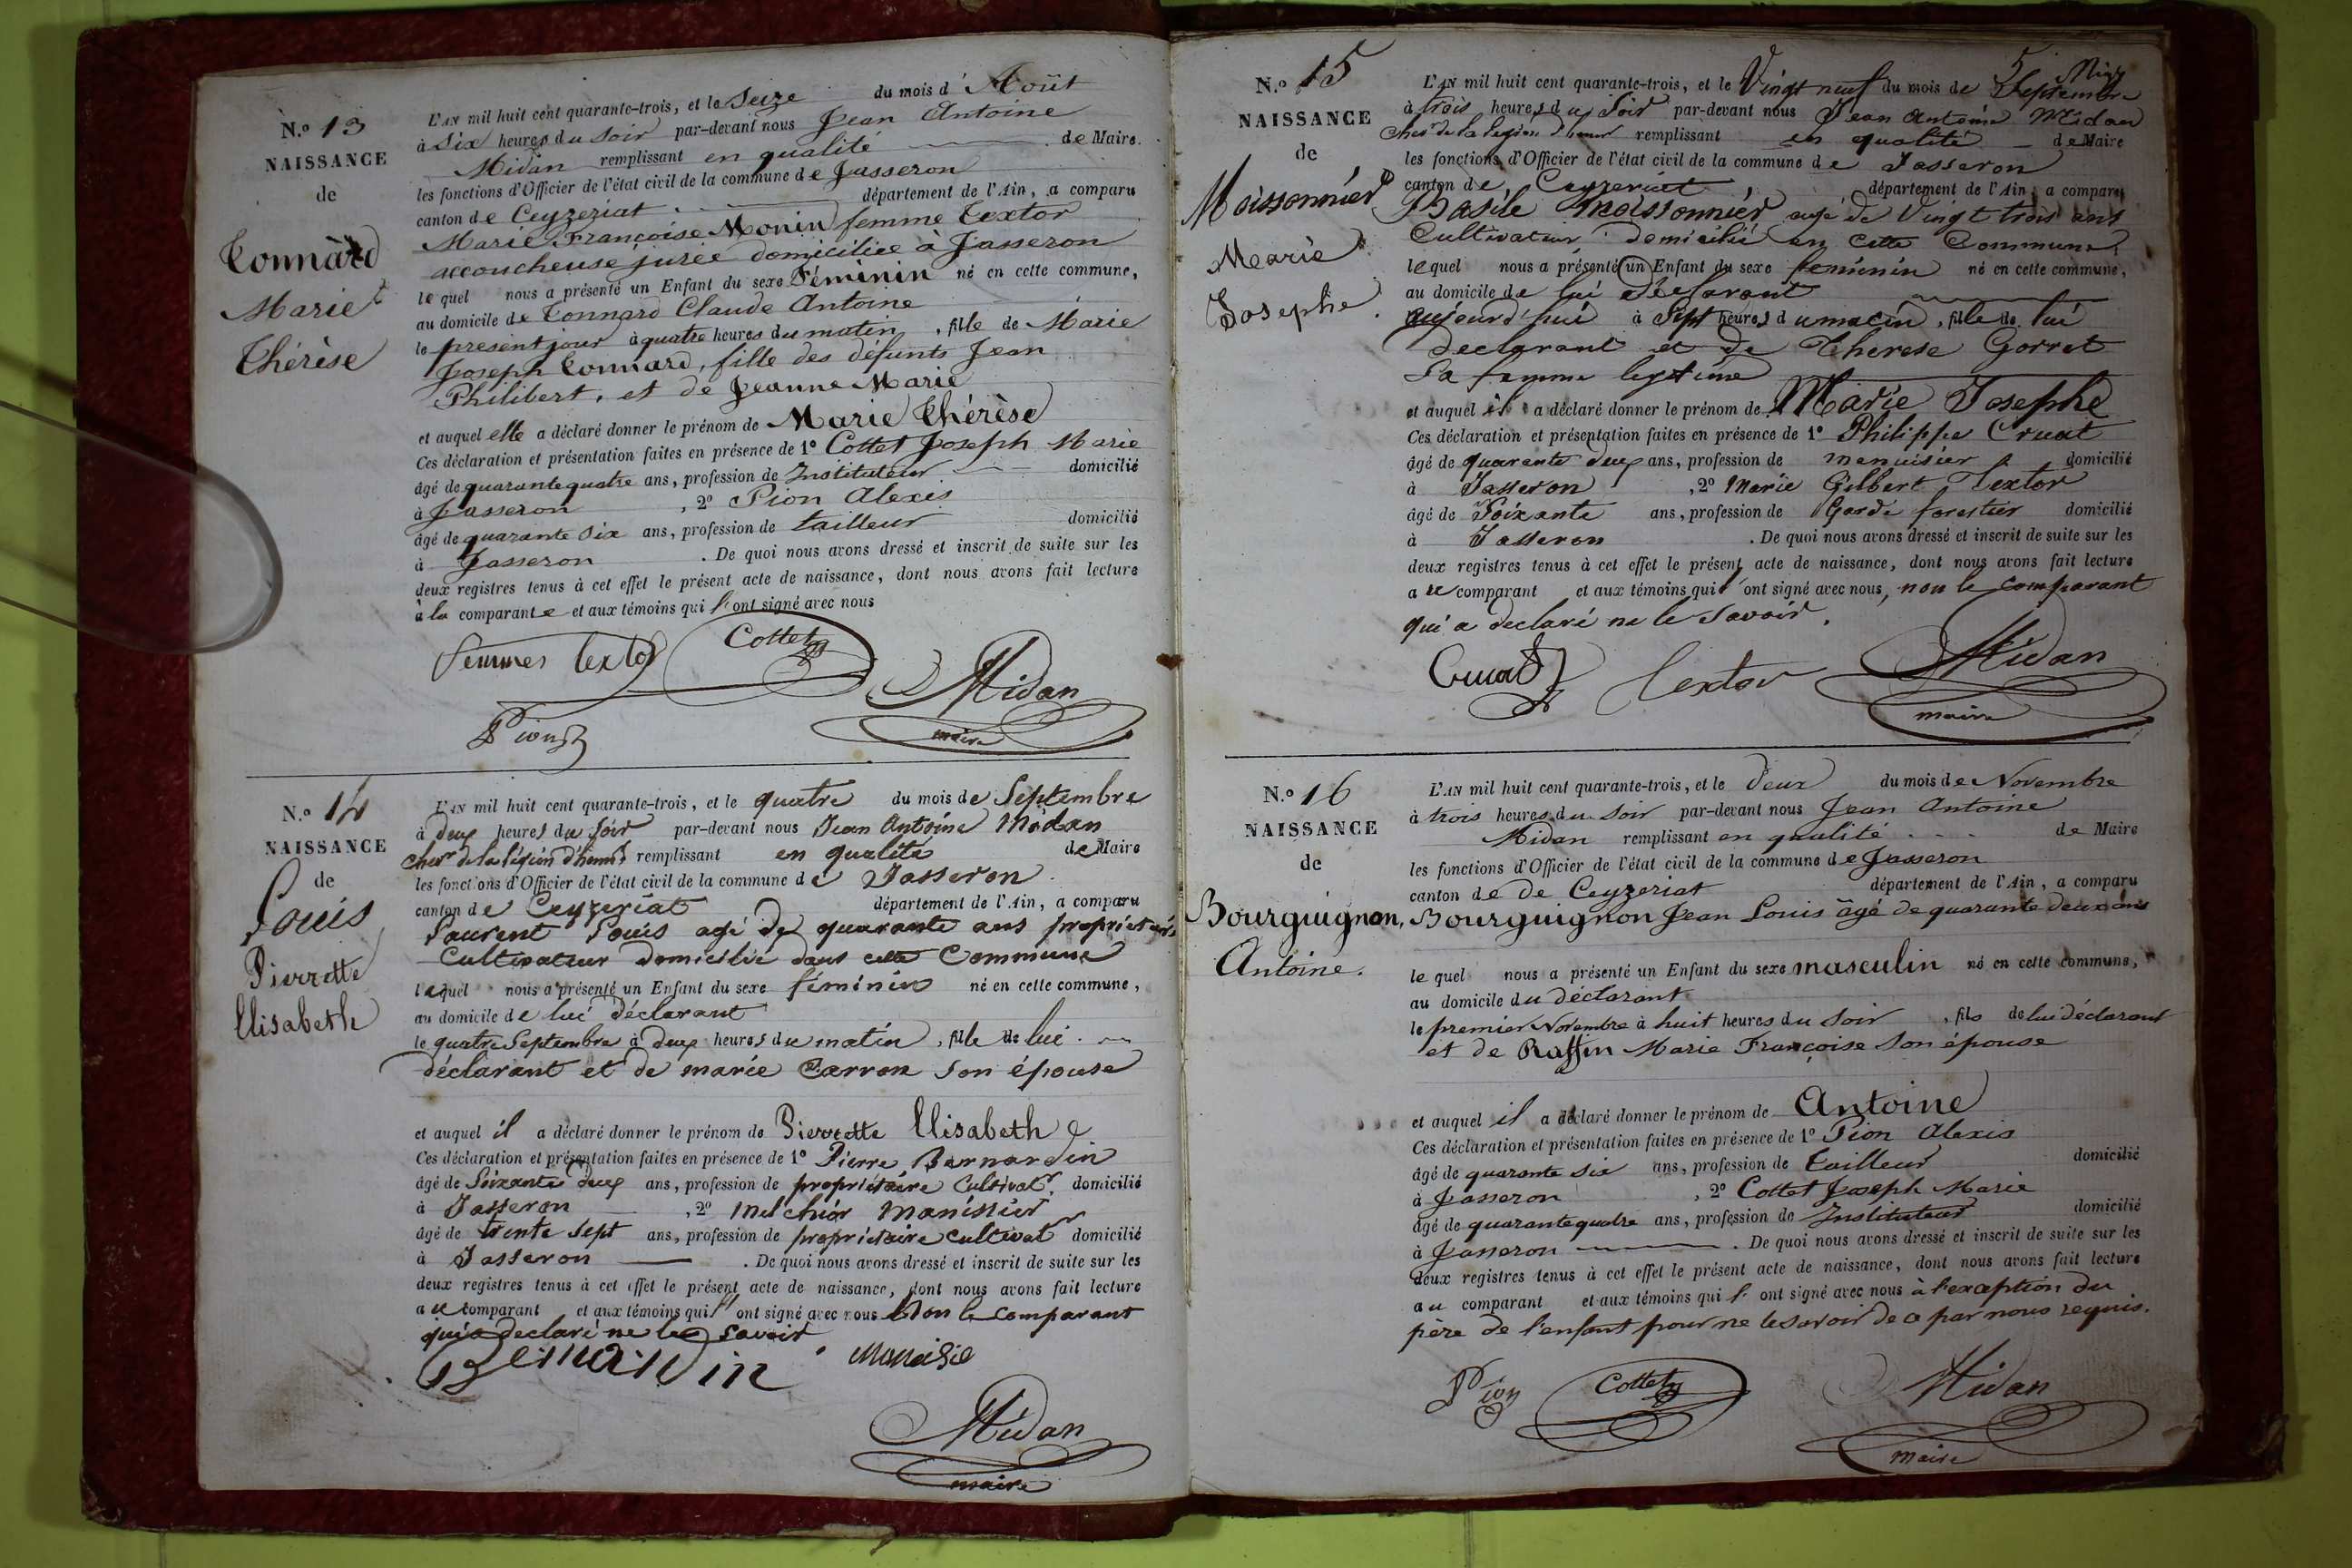 N.o 13
NAISSANCE
de
Tonnard
Marie
Thérèse
L'AN mil huit cent quarante-trois, et le Seize du mois d' Août
à Six heures du Soir par-devant nous Jean Antoine
Midan remplissant en qualité de Maire.
les fonctions d'Officier de l'état civil de la commune de Jasseron
canton de Ceyzeriat département de l'Ain, a comparu
Marie Françoise Monin femme Textor
accoucheuse jurée domiciliée à Jasseron
le quel nous a présenté un Enfant du sexe Féminin né en cette commune,
au domicile de Tonnard Claude Antoine
le present jour à quatre heures du matin, fille de Marie
Joseph Tonnard, fille des défunts Jean
Philibert, et de Jeanne Marie
et auquel elle a déclaré donner le prénom de Marie Thérèse
Ces déclaration et présentation faites en présence de 1o Cottet Joseph Marie
âgé de quarante quatre ans, profession de Instituteur domicilié
à Jasseron, 2o Pion Alexis
âgé de quarante six ans, profession de tailleur domicilié
à Jasseron. De quoi nous avons dressé et inscrit de suite sur les
deux registres tenus à cet effet le présent acte de naissance, dont nous avons fait lecture
à la comparante et aux témoins qui l' ont signé avec nous
femmes textor Cottet
Midan
Pion
maire
N.o 14
NAISSANCE
de
Louis
Pierrette
Elisabeth
L'AN mil huit cent quarante-trois, et le quatre du mois de Septembre
à deux heures du Soir par-devant nous Jean Antoine Midan
cher de la légion d'honr remplissant en qualité de Maire
les fonctions d'Officier de l'état civil de la commune de Jasseron
canton de Ceyzeriat département de l'Ain, a comparu
Laurent Louis agé de quarante ans propriétaire
Cultivateur domicilié dans cette Commune
lequel nous a présenté un Enfant du sexe féminin né en cette commune,
au domicile de lui déclarant
le quatre Septembre à deux heures du matin, fille de lui
déclarant et de marie Carron son épouse
et auquel il a déclaré donner le prénom de Pierrette Elisabeth
Ces déclaration et présentation faites en présence de 1o Pierre Bernardin
âgé de Soixante deux ans, profession de propriétaire Cultivatr. domicilié
à Jasseron, 2o Melchior Manissier
âgé de trente sept ans, profession de propriétaire cultivatr domicilié
à Jasseron. De quoi nous avons dressé et inscrit de suite sur les
deux registres tenus à cet effet le présent acte de naissance, dont nous avons fait lecture
au comparant et aux témoins qui l' ont signé avec nous Non le comparant
qui a declaré ne le savoir
Bernardin
Midan
maire
5
N.o 15
NAISSANCE
de
Moissonnier
Marie
Josephe
L'AN mil huit cent quarante-trois, et le Vingt neuf du mois de Septembre
à trois heures du Soir par-devant nous Jean Antoine Midan
Cher de la légion d'honnr remplissant en qualité de Maire
les fonctions d'Officier de l'état civil de la commune de Jasseron
canton de Ceyzeriat, département de l'Ain, a comparu
Basile Moissonnier agé de Vingt trois ans
Cultivateur domicilié en cette Commune
lequel nous a présenté un Enfant du sexe feminin né en cette commune,
au domicile de lui déclarant
aujourd'hui à Sept heures du matin, fille de lui
declarant et de Therese Gorret
Sa femme legitime
et auquel il a déclaré donner le prénom de Marie Josephe
Ces déclaration et présentation faites en présence de 1o Philippe Cruat
âgé de quarante deux ans, profession de menuisier domicilié
à Jasseron, 2o Marie Gilbert Textor
âgé de Soixante ans, profession de Garde forestier domicilié
à Jasseron. De quoi nous avons dressé et inscrit de suite sur les
deux registres tenus à cet effet le présent acte de naissance, dont nous avons fait lecture
au comparant et aux témoins qui l' ont signé avec nous, non le comparant
qui a declaré ne le savoir.
Cruat textor Midan
maire
N.o 16
NAISSANCE
de
Bourguignon,
Antoine.
L'AN mil huit cent quarante-trois, et le deux du mois de Novembre
à trois heures du soir par-devant nous Jean Antoine
Midan remplissant en qualité de Maire
les fonctions d'Officier de l'état civil de la commune de Jasseron
canton de de Ceyzeriat département de l'Ain, a comparu
Bourguignon Jean Louis âgé de quarante deux ans
le quel nous a présenté un Enfant du sexe masculin né en cette commune,
au domicile du déclarant
le premier Novembre à huit heures du Soir, fils de lui déclarant
et de Raffin Marie Françoise son épouse
et auquel il a déclaré donner le prénom de Antoine
Ces déclaration et présentation faites en présence de 1o Pion Alexis
âgé de quarante six ans, profession de tailleur domicilié
à Jasseron, 2o Cottet Joseph Marie
âgé de quarante quatre ans, profession de Instituteur domicilié
à Jasseron. De quoi nous avons dressé et inscrit de suite sur les
deux registres tenus à cet effet le présent acte de naissance, dont nous avons fait lecture
au comparant et aux témoins qui l' ont signé avec nous à l'exception du
père de l'enfant pour ne le savoir de ce par nous requis.
Pion Cottet Midan
maire